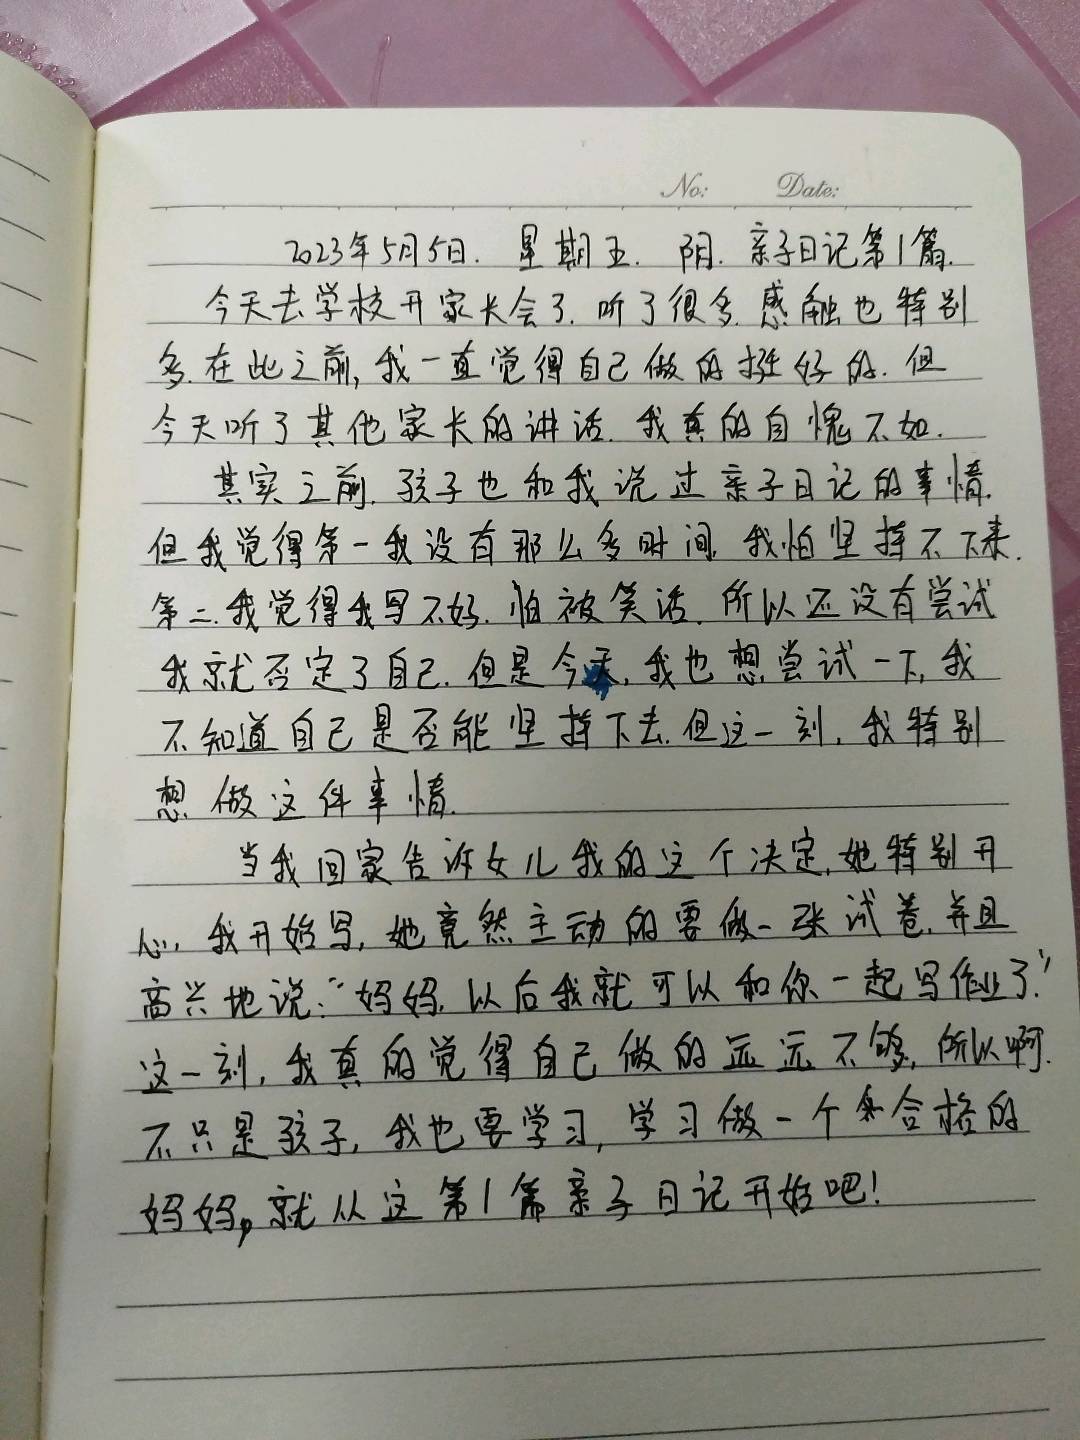 No: Date:
2023年5月5日. 星期五. 阴. 亲子日记第1篇.
今天去学校开家长会了. 听了很多. 感触也特别
多. 在此之前, 我一直觉得自己做的挺好的. 但
今天听了其他家长的讲话. 我真的自愧不如.
其实之前. 孩子也和我说过亲子日记的事情.
但我觉得第一我没有那么多时间, 我怕坚持不下来.
第二. 我觉得我写不好. 怕被笑话. 所以还没有尝试
我就否定了自己. 但是今天, 我也想尝试一下, 我
不知道自己是否能坚持下去. 但这一刻, 我特别
想做这件事情.
当我回家告诉女儿我的这个决定, 她特别开
心, 我开始写, 她竟然主动的要做一张试卷, 并且
高兴地说:“妈妈, 以后我就可以和你一起写作业了.”
这一刻, 我真的觉得自己做的远远不够, 所以啊.
不只是孩子, 我也要学习, 学习做一个合格的
妈妈, 就从这第1篇亲子日记开始吧!